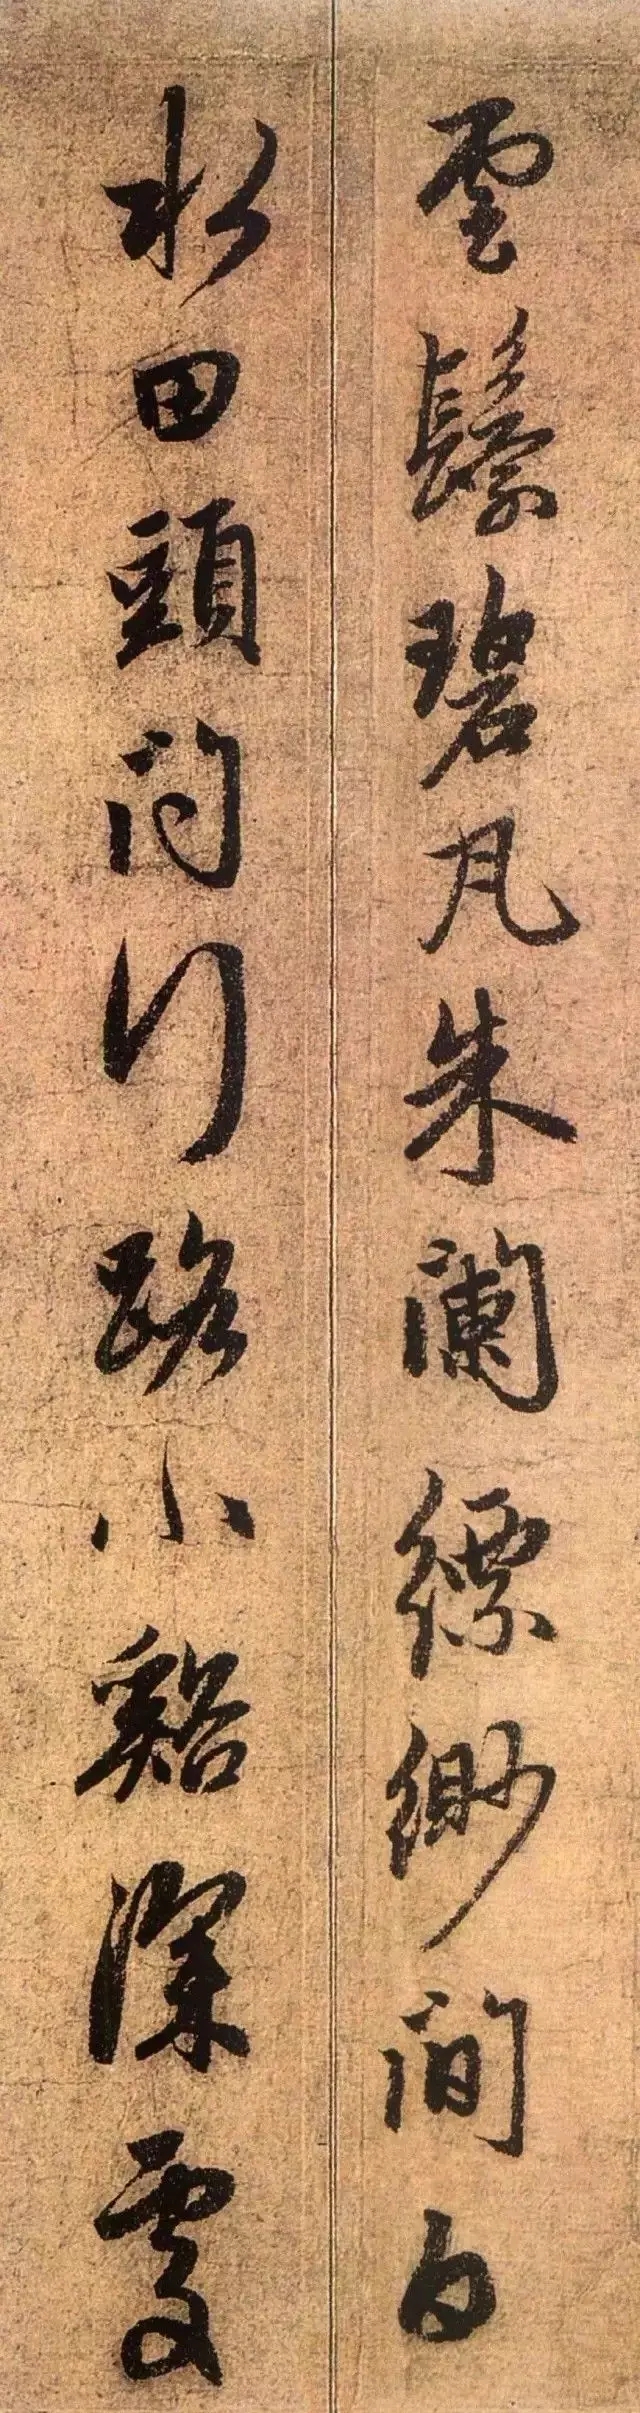 雲鬆碧瓦朱闌縹緲間白
水田頭問行路小谿深處